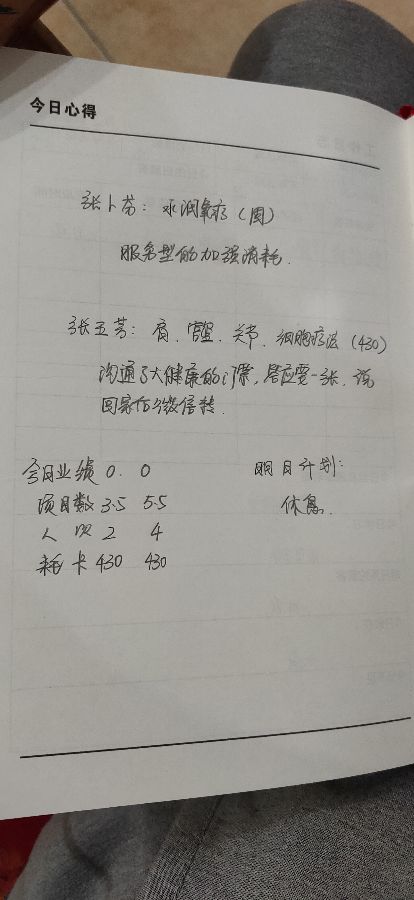 今日心得
张卜芬：水润氧疗（周）
服务型的加强消耗．
张玉芳：肩．宫温．关节．细胞疗法（430）
沟通了大健康的，答应要一张．说
回家后微信转．
今日业绩 0． 0
项目数 3.5 5.5
人 次 2 4
耗卡 430 430
明日计划：
休息．